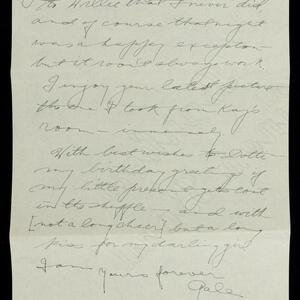 to Willie that I never did
and of course that night
was a happy exception
but it won't always work
I enjoy your latest picture
the one I took from Kay's
room — immensely
With best wishes to Lotte
my birthday greetings if
my little present gets lost
in the shuffle — and with
[not a long cheer] but a long
kiss for my darling girl
I am
Yours forever
Gale